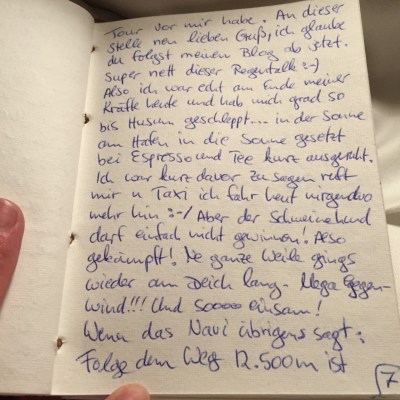 Tour vor mir habe. An dieser
Stelle nen lieben Gruß, ich glaube
du folgst meinen Blog ab jetzt.
Super nett dieser Regentalk :-)
Also ich war echt am Ende meiner
Kräfte heute und hab mich grad so
bis Husum geschleppt... in der Sonne
am Hafen in die Sonne gesetzt
bei Espresso und Tee kurz ausgeruht.
Ich war kurz davor zu sagen ruft
mir n Taxi ich fahr heut nirgendwo
mehr hin :-/ Aber der Schweinehund
darf einfach nicht gewinnen! Also
gekämpft! Ne ganze Weile gings
wieder am Deich lang. Mega Gegen-
wind!!! Und soooo einsam!
Wenn das Navi übrigens sagt:
Folge dem Weg 12.500m ist
7